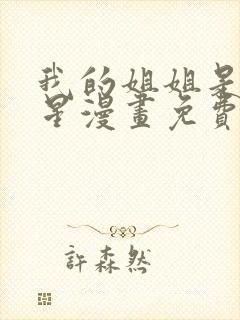 我的姐姐是
星漫畫免費
許森然